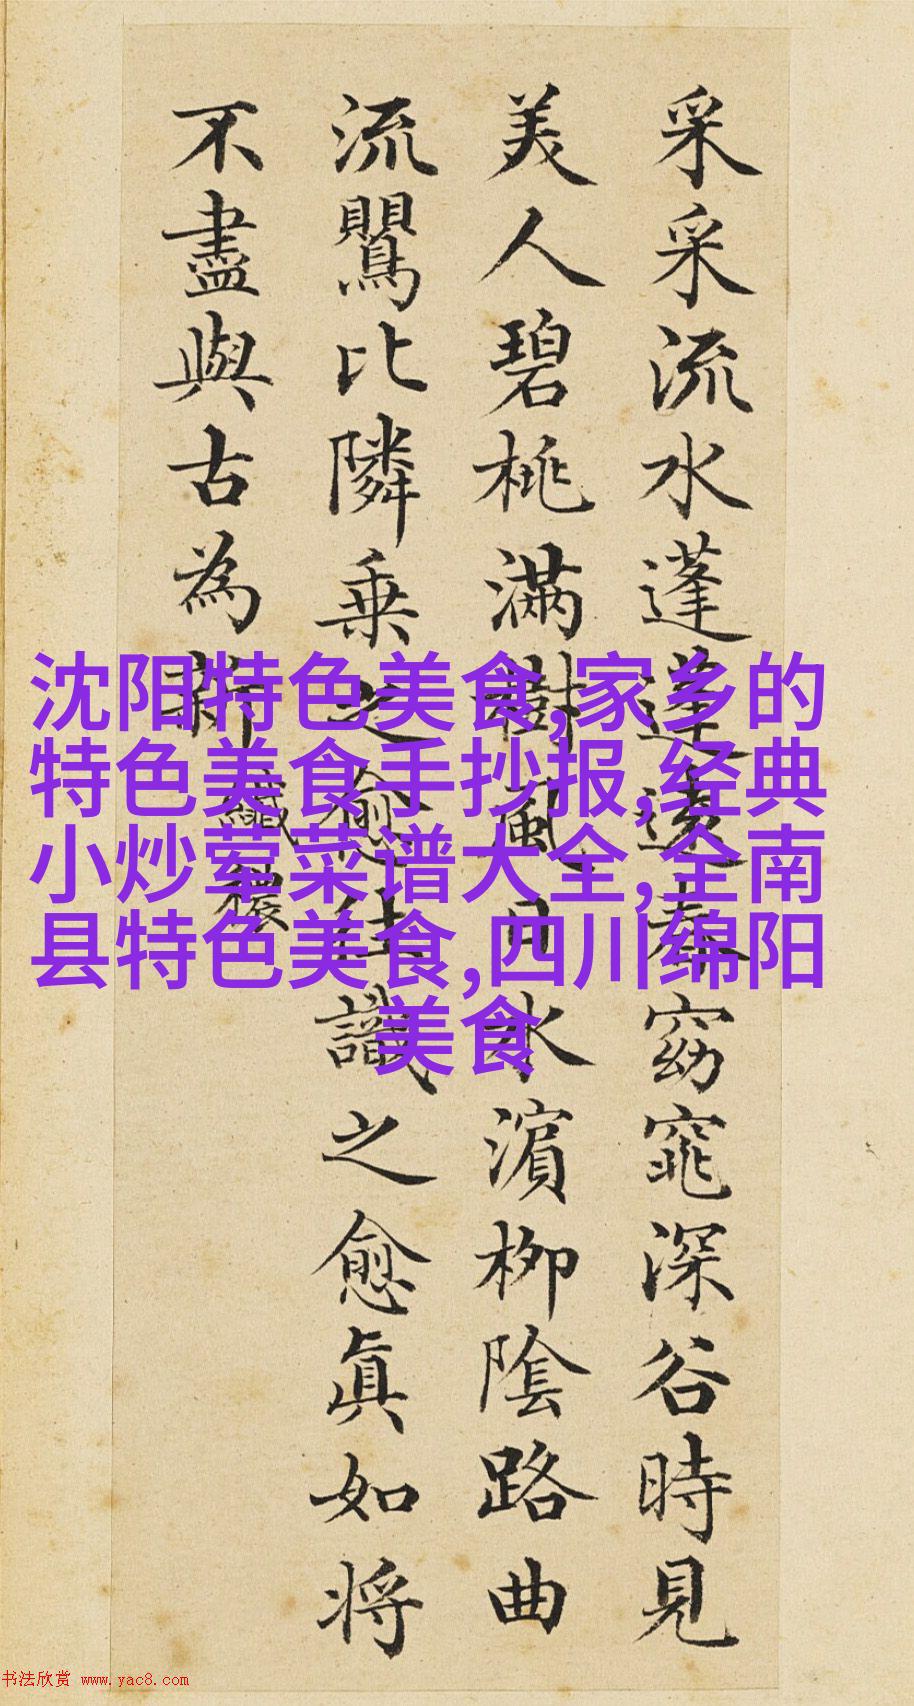 采采流水蓬蓬遠春窈窕深谷時見
美人碧桃滿樹風日水濵柳隂路曲
流鸎比隣乗之愈往識之愈眞如将
不盡與古為新 纖穠
沈阳特色美食,家乡的
特色美食手抄报,经典
小炒荤菜谱大全,全南
县特色美食,四川绵阳
美食
书法欣赏 www.yac8.com